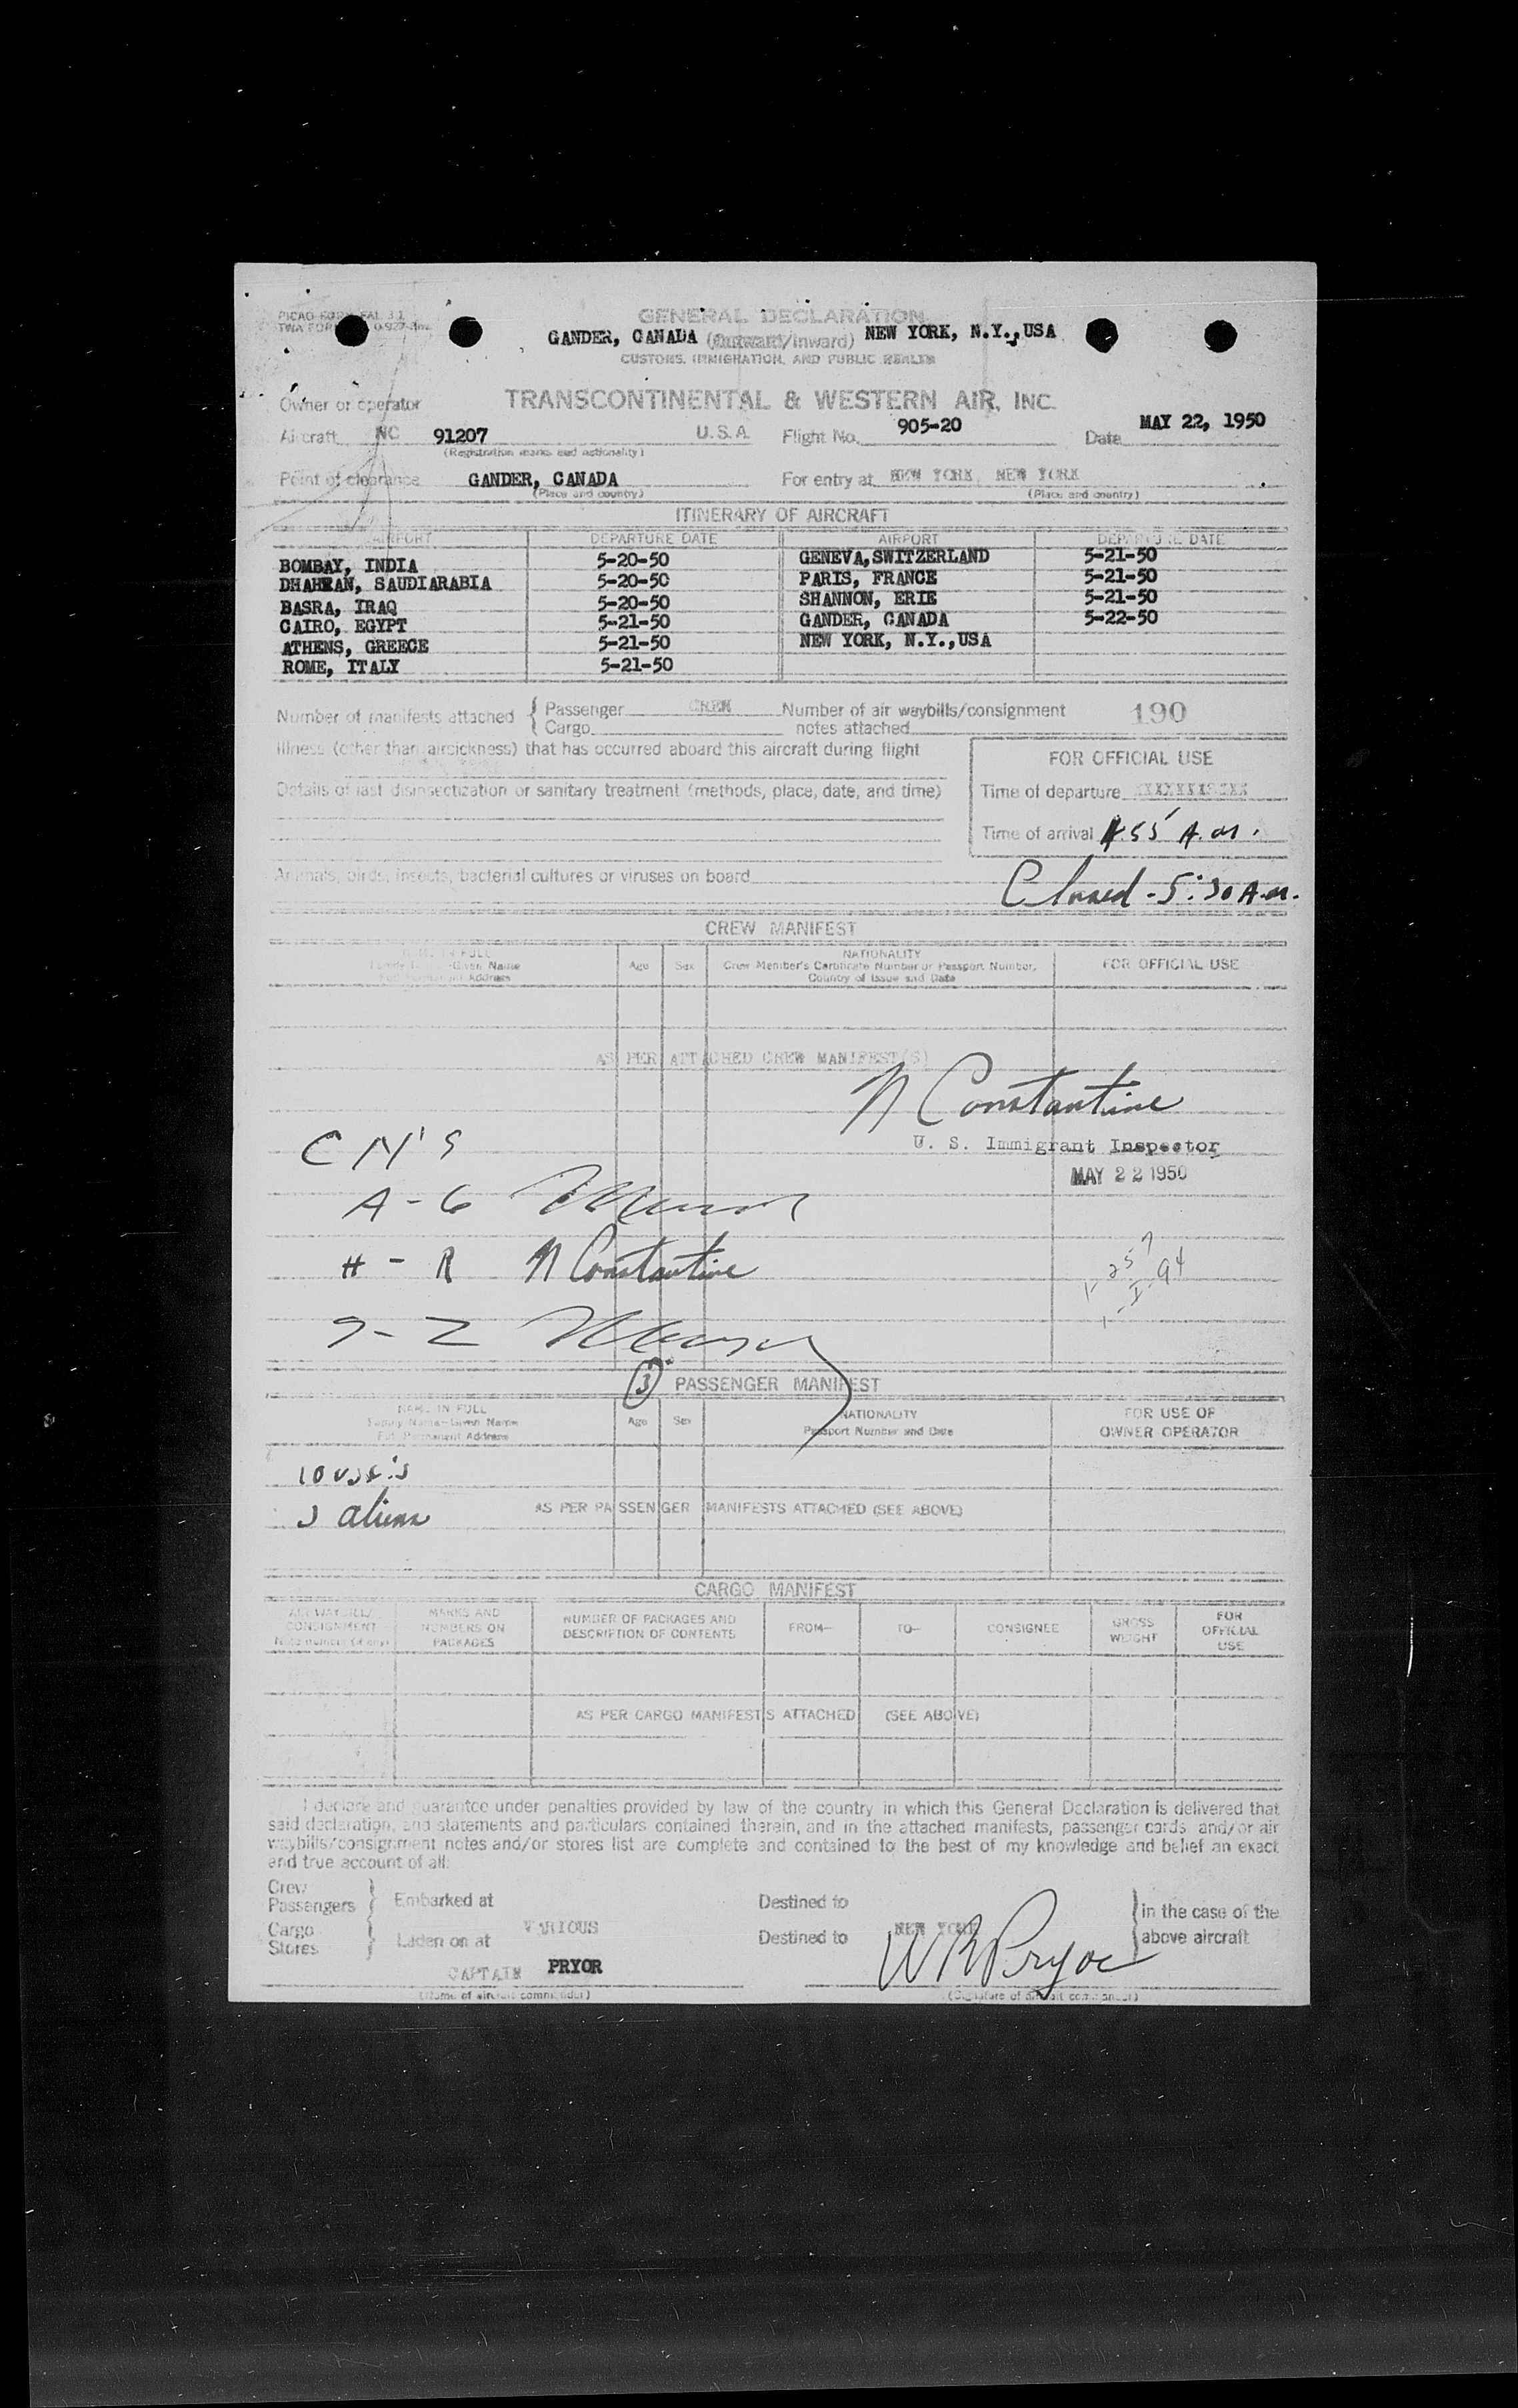 GENERAL DECLARATION
GANDER, CANADA (Outward/Inward) NEW YORK, N.Y.,USA
CUSTOMS, IMMIGRATION, AND PUBLIC HEALTH
Owner or operator TRANSCONTINENTAL & WESTERN AIR, INC.
Aircraft NC 91207 U.S.A. Flight No. 905-20 Date MAY 22, 1950
(Registration marks and nationality)
Point of clearance GANDER, CANADA For entry at NEW YORK, NEW YORK
(Place and country) (Place and country)
ITINERARY OF AIRCRAFT
AIRPORT DEPARTURE DATE AIRPORT DEPARTURE DATE
BOMBAY, INDIA 5-20-50 GENEVA,SWITZERLAND 5-21-50
DHAHRAN, SAUDIARABIA 5-20-50 PARIS, FRANCE 5-21-50
BASRA, IRAQ 5-20-50 SHANNON, ERIE 5-21-50
CAIRO, EGYPT 5-21-50 GANDER, CANADA 5-22-50
ATHENS, GREECE 5-21-50 NEW YORK, N.Y.,USA
ROME, ITALY 5-21-50
Number of manifests attached { Passenger CREW Number of air waybills/consignment 190
Cargo notes attached
Illness (other than airsickness) that has occurred aboard this aircraft during flight
FOR OFFICIAL USE
Details of last disinsectization or sanitary treatment (methods, place, date, and time)
Time of departure
Time of arrival 4.55 A.M.
Animals, birds, insects, bacterial cultures or viruses on board
Closed - 5:30 A.M.
CREW MANIFEST
NAME IN FULL
Family Name-Given Name
Full Permanent Address
Age Sex
NATIONALITY
Crew Member's Certificate Number or Passport Number,
Country of Issue and Date
FOR OFFICIAL USE
AS PER ATTACHED CREW MANIFEST(S)
N Constantine
U. S. Immigrant Inspector
MAY 22 1950
A - G
H - R N Constantine
(3) PASSENGER MANIFEST
NAME IN FULL
Family Name-Given Name
Full Permanent Address
Age Sex
NATIONALITY
Passport Number and Date
FOR USE OF
OWNER OPERATOR
10 USC's
aliens
AS PER PASSENGER MANIFESTS ATTACHED (SEE ABOVE)
CARGO MANIFEST
AIR WAYBILL/
CONSIGNMENT
MARKS AND
NUMBERS ON
PACKAGES
NUMBER OF PACKAGES AND
DESCRIPTION OF CONTENTS
FROM— TO— CONSIGNEE
GROSS
WEIGHT
FOR
OFFICIAL
USE
AS PER CARGO MANIFESTS ATTACHED (SEE ABOVE)
I declare and guarantee under penalties provided by law of the country in which this General Declaration is delivered that
said declaration, and statements and particulars contained therein, and in the attached manifests, passenger cards and/or air
waybills/consignment notes and/or stores list are complete and contained to the best of my knowledge and belief an exact
and true account of all:
Crew
Passengers } Embarked at Destined to } in the case of the
Cargo
Stores } Laden on at VARIOUS Destined to NEW YORK above aircraft
CAPTAIN PRYOR W R Pryor
(Name of aircraft commander) (Signature of aircraft commander)